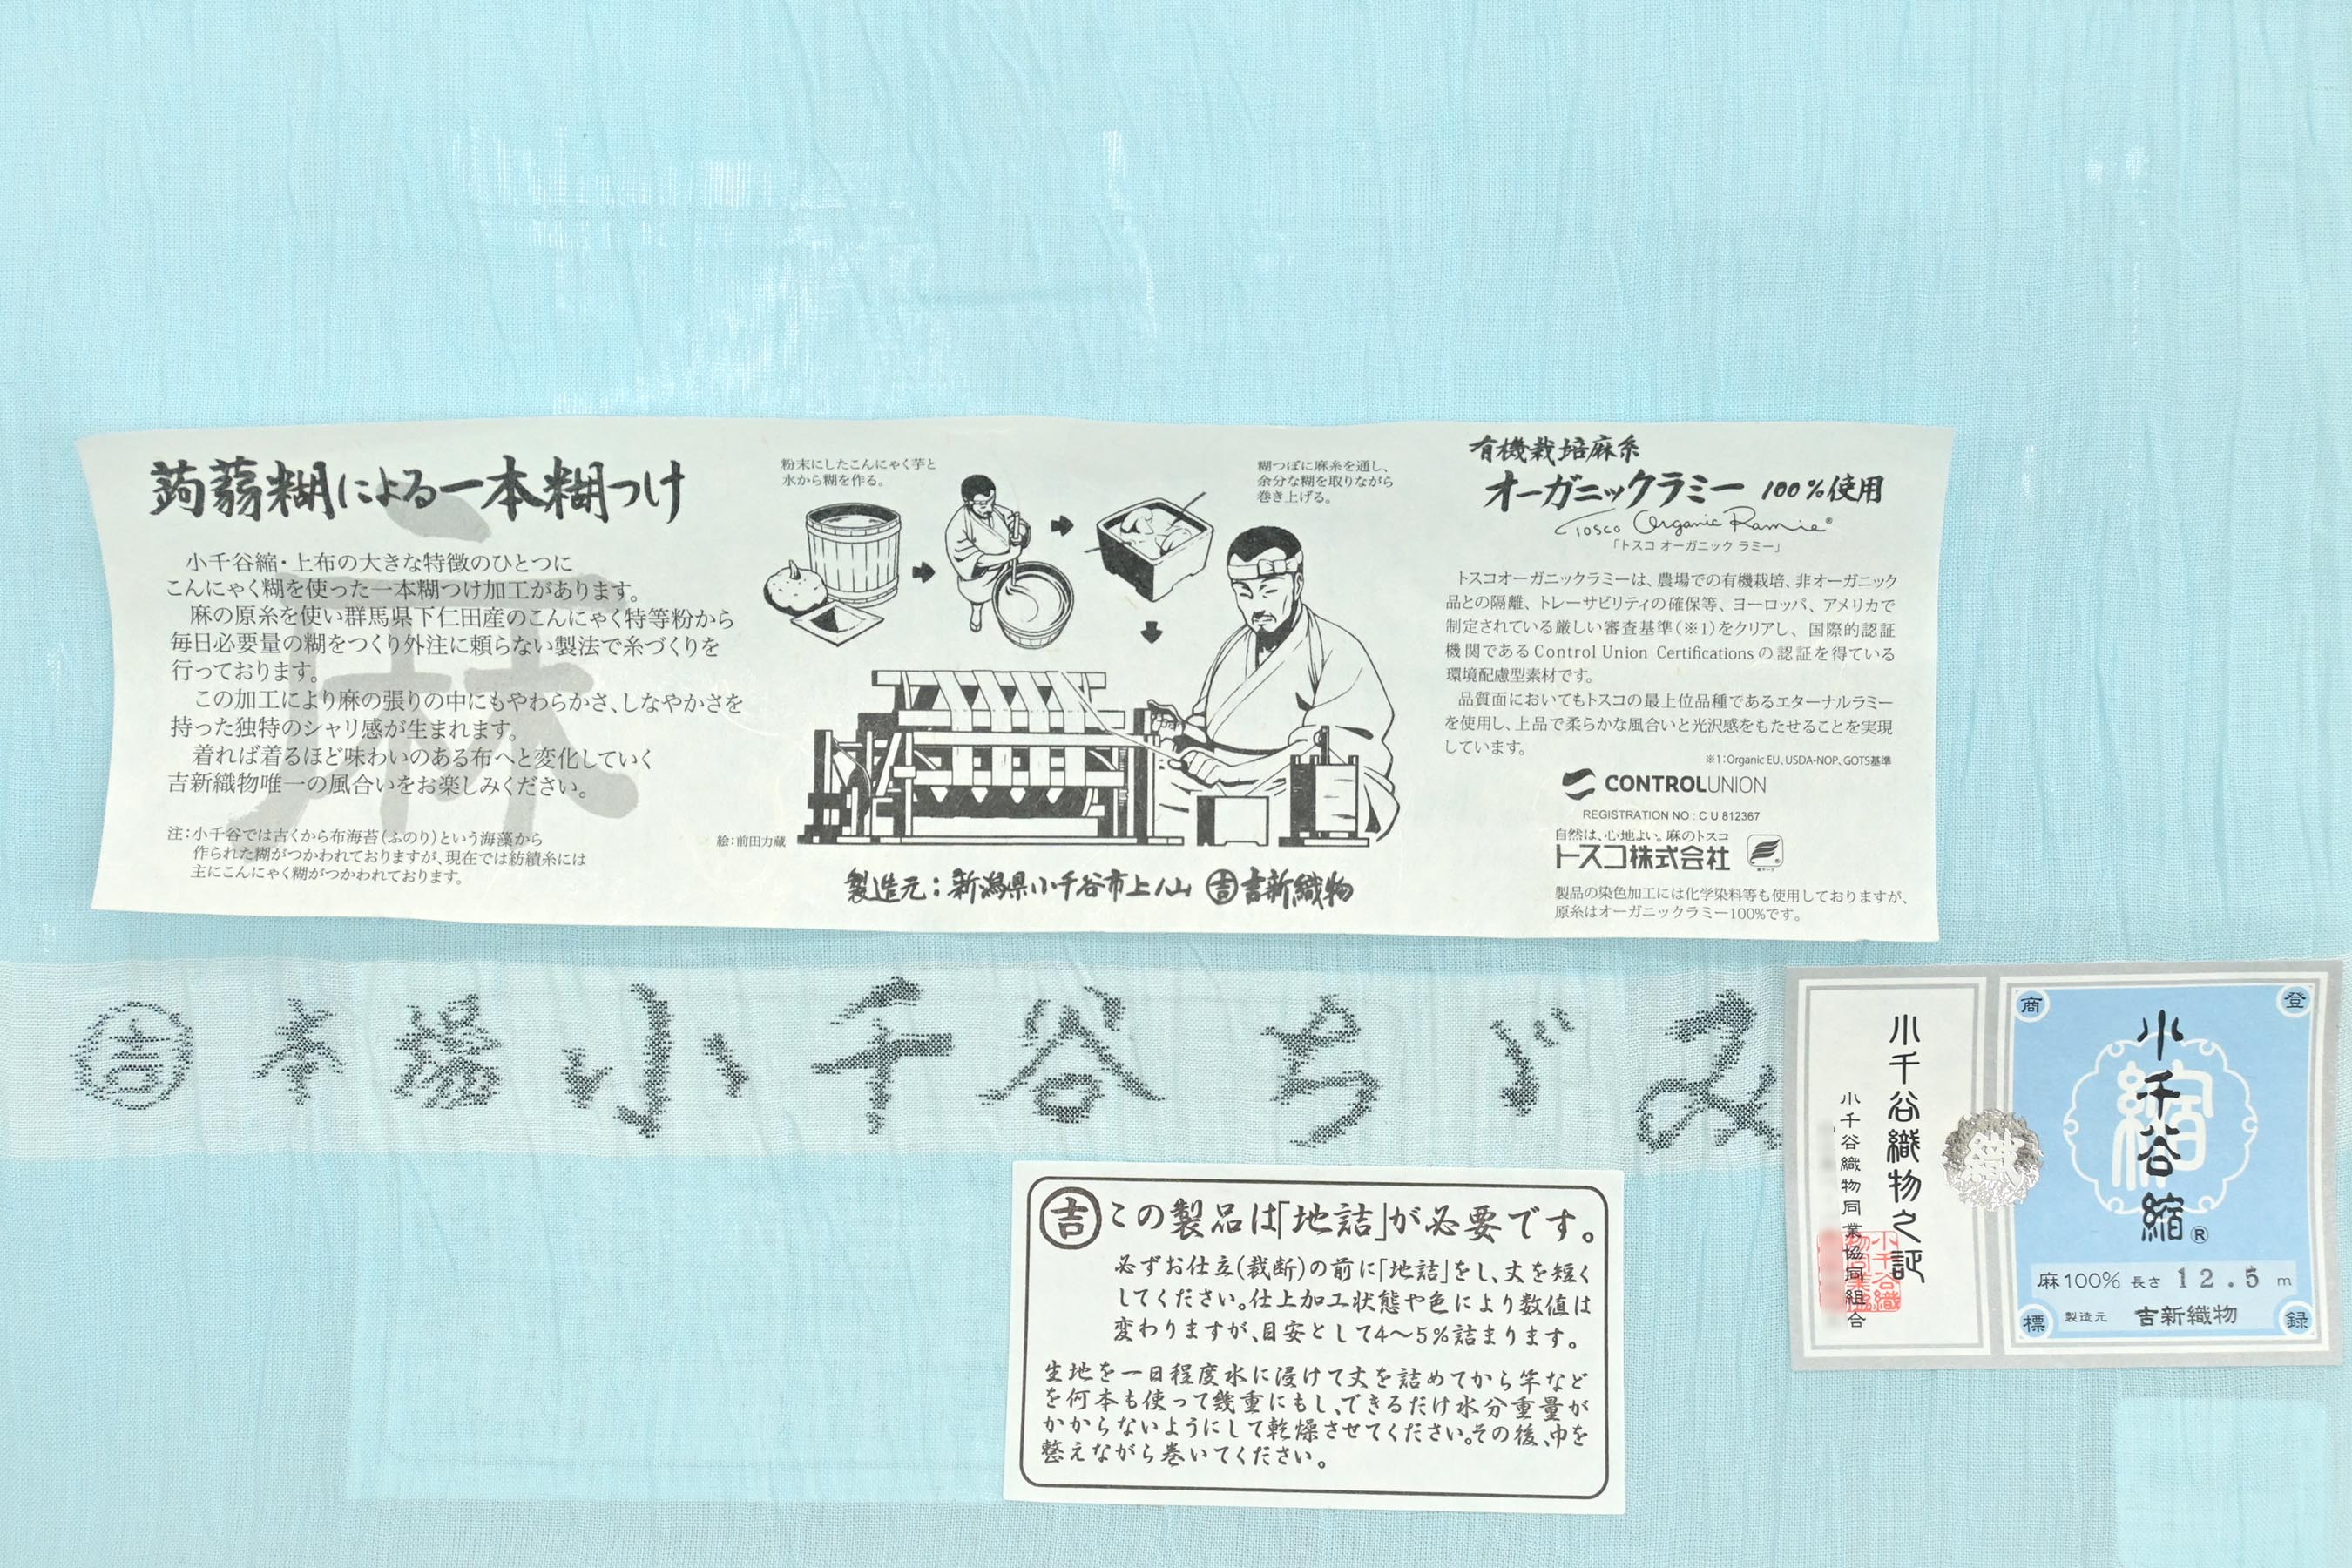 蒟蒻糊による一本糊つけ
小千谷縮・上布の大きな特徴のひとつに
こんにゃく糊を使った一本糊つけ加工があります。
麻の原糸を使い群馬県下仁田産のこんにゃく特等粉から
毎日必要量の糊をつくり外注に頼らない製法で糸づくりを
行っております。
この加工により麻の張りの中にもやわらかさ、しなやかさを
持った独特のシャリ感が生まれます。
着れば着るほど味わいのある布へと変化していく
吉新織物唯一の風合いをお楽しみください。
注：小千谷では古くから布海苔（ふのり）という海藻から
作られた糊がつかわれておりますが、現在では紡績糸には
主にこんにゃく糊がつかわれております。
麻
粉末にしたこんにゃく芋と
水から糊を作る。
糊つぼに麻糸を通し、
余分な糊を取りながら
巻き上げる。
絵：前田力蔵
製造元：新潟県小千谷市上ノ山 ㊉吉新織物
有機栽培麻糸
オーガニックラミー 100%使用
Tosco Organic Ramie®
「トスコ オーガニック ラミー」
トスコオーガニックラミーは、農場での有機栽培、非オーガニック
品との隔離、トレーサビリティの確保等、ヨーロッパ、アメリカで
制定されている厳しい審査基準（※1）をクリアし、国際的認証
機関であるControl Union Certificationsの認証を得ている
環境配慮型素材です。
品質面においてもトスコの最上位品種であるエターナルラミー
を使用し、上品で柔らかな風合いと光沢感をもたせることを実現
しています。
※1：Organic EU、USDA-NOP、GOTS基準
CONTROLUNION
REGISTRATION NO : C U 812367
自然は、心地よい。麻のトスコ
トスコ株式会社
製品の染色加工には化学染料等も使用しておりますが、
原糸はオーガニックラミー100%です。
吉 本場小千谷ちゞみ
小千谷織物之証
小千谷織物同業協同組合
織
商 登
縮
小千谷縮®
麻100% 長さ 12.5 m
標 製造元 吉新織物 録
吉 この製品は「地詰」が必要です。
必ずお仕立(裁断)の前に「地詰」をし、丈を短く
してください。仕上加工状態や色により数値は
変わりますが、目安として4～5%詰まります。
生地を一日程度水に浸けて丈を詰めてから竿など
を何本も使って幾重にもし、できるだけ水分重量が
かからないようにして乾燥させてください。その後、巾を
整えながら巻いてください。